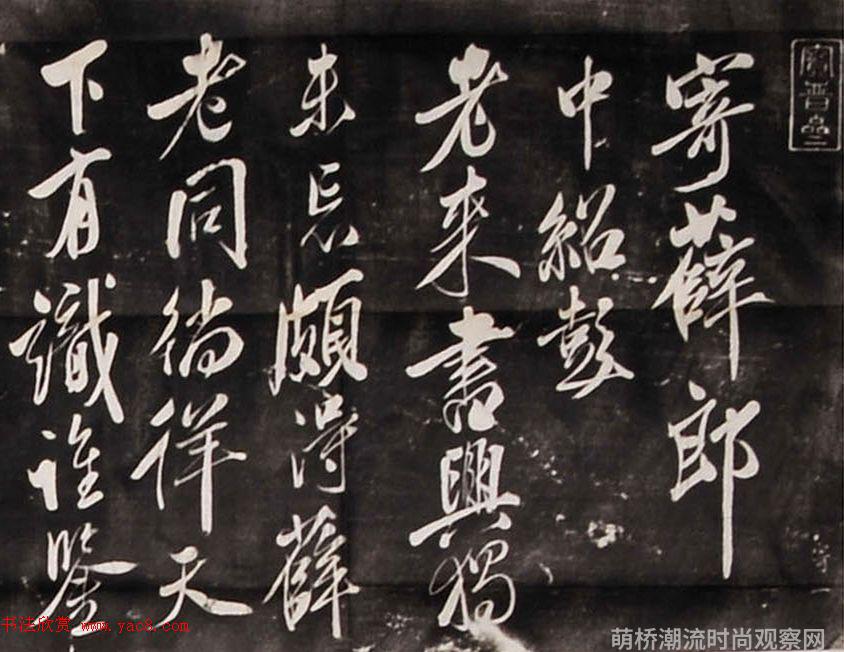 寄薛郎
中紹彭
老来書興獨
未忘頗得薛
老同徜徉天
下有識誰鑒
書法欣赏 www.yac8.com
萌桥潮流时尚观察网